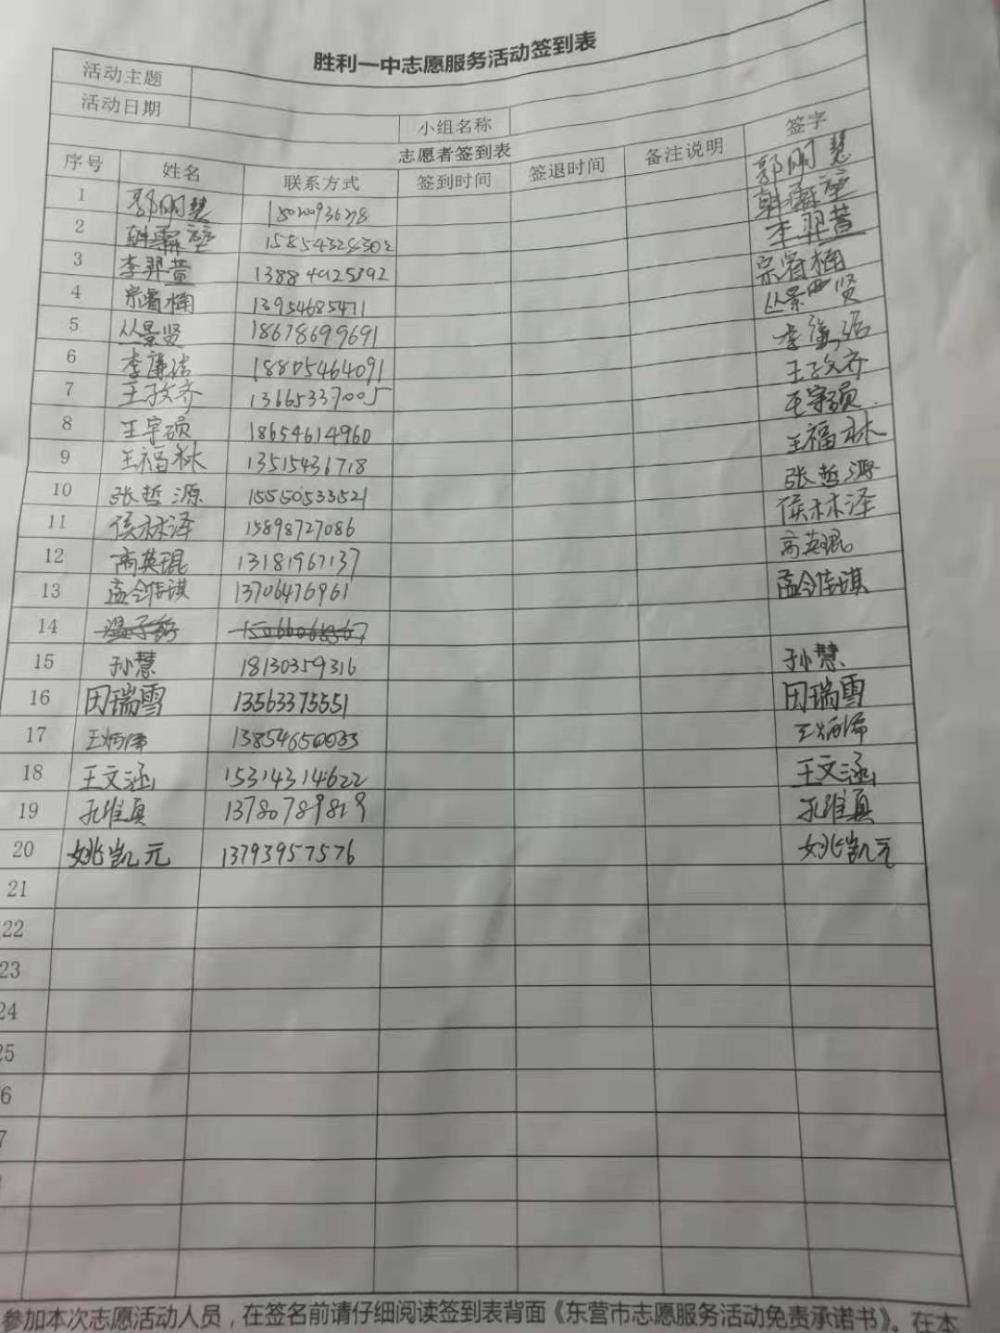 胜利一中志愿服务活动签到表
活动主题
活动日期
小组名称
志愿者签到表
序号 姓名 联系方式 签到时间 签退时间 备注说明 签字
1 郭明慧 郭明慧
2 韩霖 15854324302 韩霖
3 李羿萱 13884925392 李羿萱
4 宗睿楠 13954685471 宗睿楠
5 丛景贤 18678699691 丛景贤
6 李廉洁 18805464091 李廉洁
7 王孜齐 13665337005 王孜齐
8 王宇硕 18654614960 王宇硕
9 王福林 13515436718 王福林
10 张哲源 15550533521 张哲源
11 侯林泽 15898727086 侯林泽
12 高英琨 13181967137 高英琨
13 孟令佳琪 13706476961 孟令佳琪
14
15 孙慧 18130359316 孙慧
16 因瑞雪 13563375551 因瑞雪
17 王炳 13854650033 王炳
18 王文涵 15314314622 王文涵
19 孔维真 13780789819 孔维真
20 姚凯元 13793957576 姚凯元
21
22
23
24
25
6
7
参加本次志愿活动人员，在签名前请仔细阅读签到表背面《东营市志愿服务活动免责承诺书》。在本